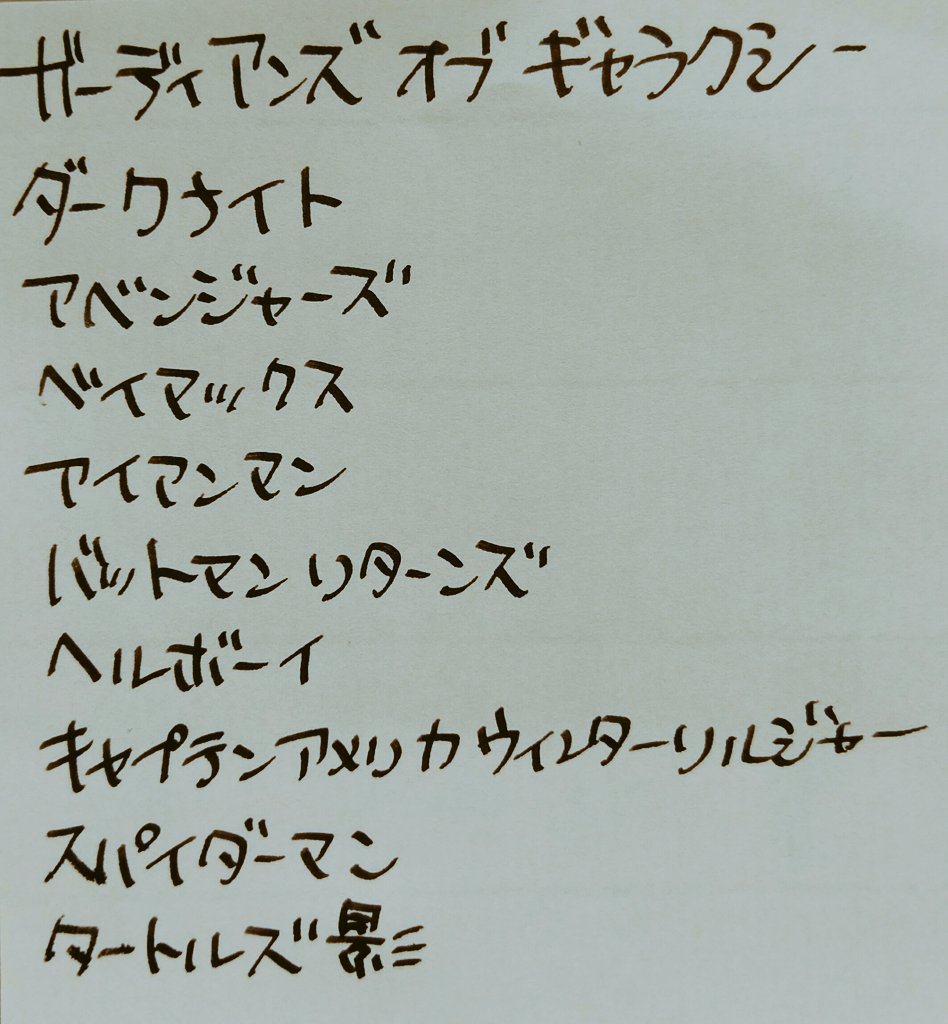 ガーディアンズ オブ ギャラクシー
ダークナイト
アベンジャーズ
ベイマックス
アイアンマン
バットマン リターンズ
ヘルボーイ
キャプテンアメリカ ウィンターソルジャー
スパイダーマン
タートルズ 影